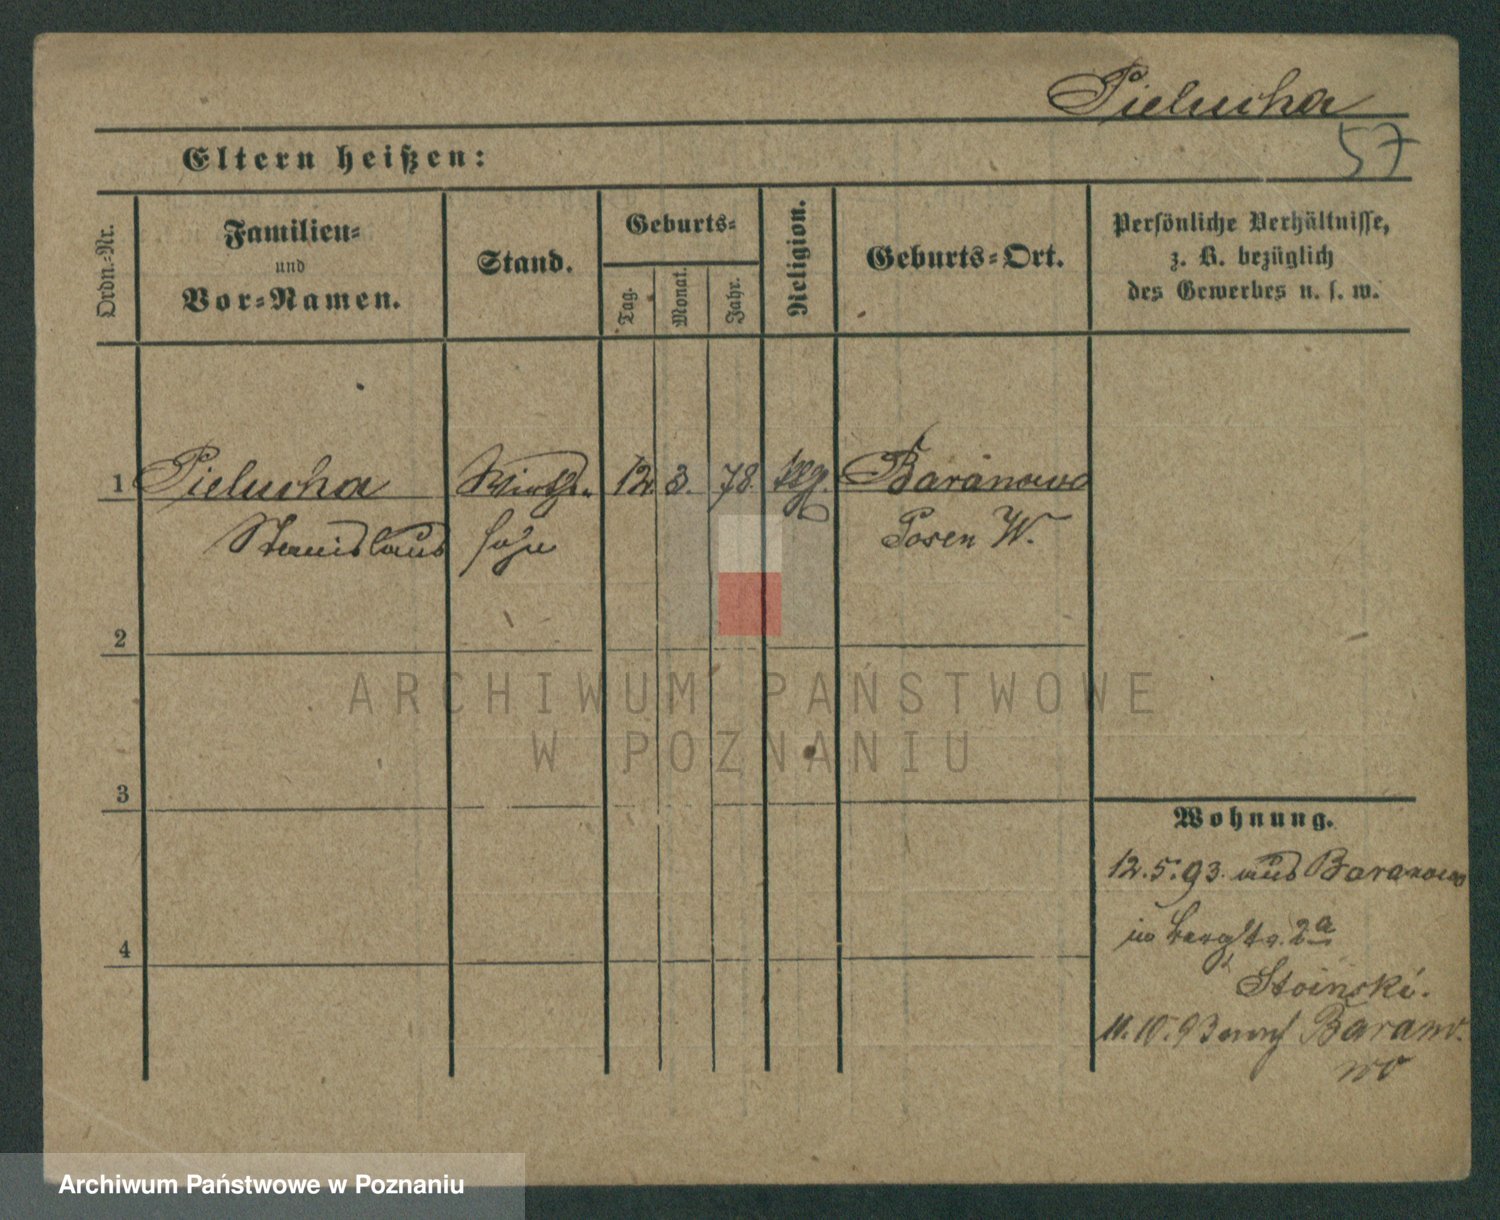 Pielucha
57
Eltern heißen:
Ordn.-Nr.
Familien-
und
Vor-Namen.
Stand.
Geburts-
Tag.
Monat.
Jahr.
Religion.
Geburts-Ort.
Persönliche Verhältnisse,
z. B. bezüglich
des Gewerbes u. s. w.
1 Pielucha Wirths- 12. 3. 78. Baranowo
Stanislaus sohn Posen W.
2
ARCHIWUM PAŃSTWOWE
W POZNANIU
3
Wohnung.
12.5.93. aus Baranowo
2a
4
Stoinski.
11.10.93 nach Barano-
wo
Archiwum Państwowe w Poznaniu